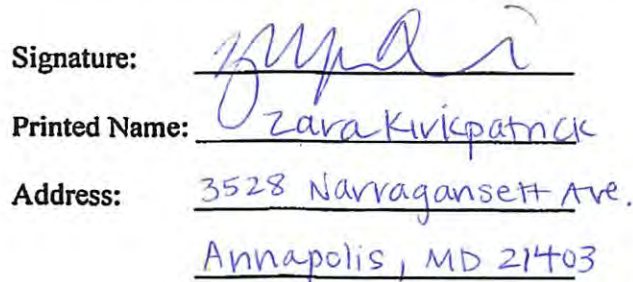 Signature:
Printed Name: Zara Kirkpatrick
Address: 3528 Narragansett Ave.
Annapolis, MD 21403